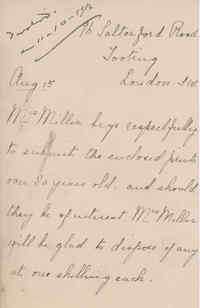 76 Saltersford Road
Tooting
Aug 15 London S.W.
Mrs Miller begs respectfully
to submit the enclosed prints
over 80 years old. and should
they be of interest Mrs Miller
will be glad to dispose of any
at one shilling each.